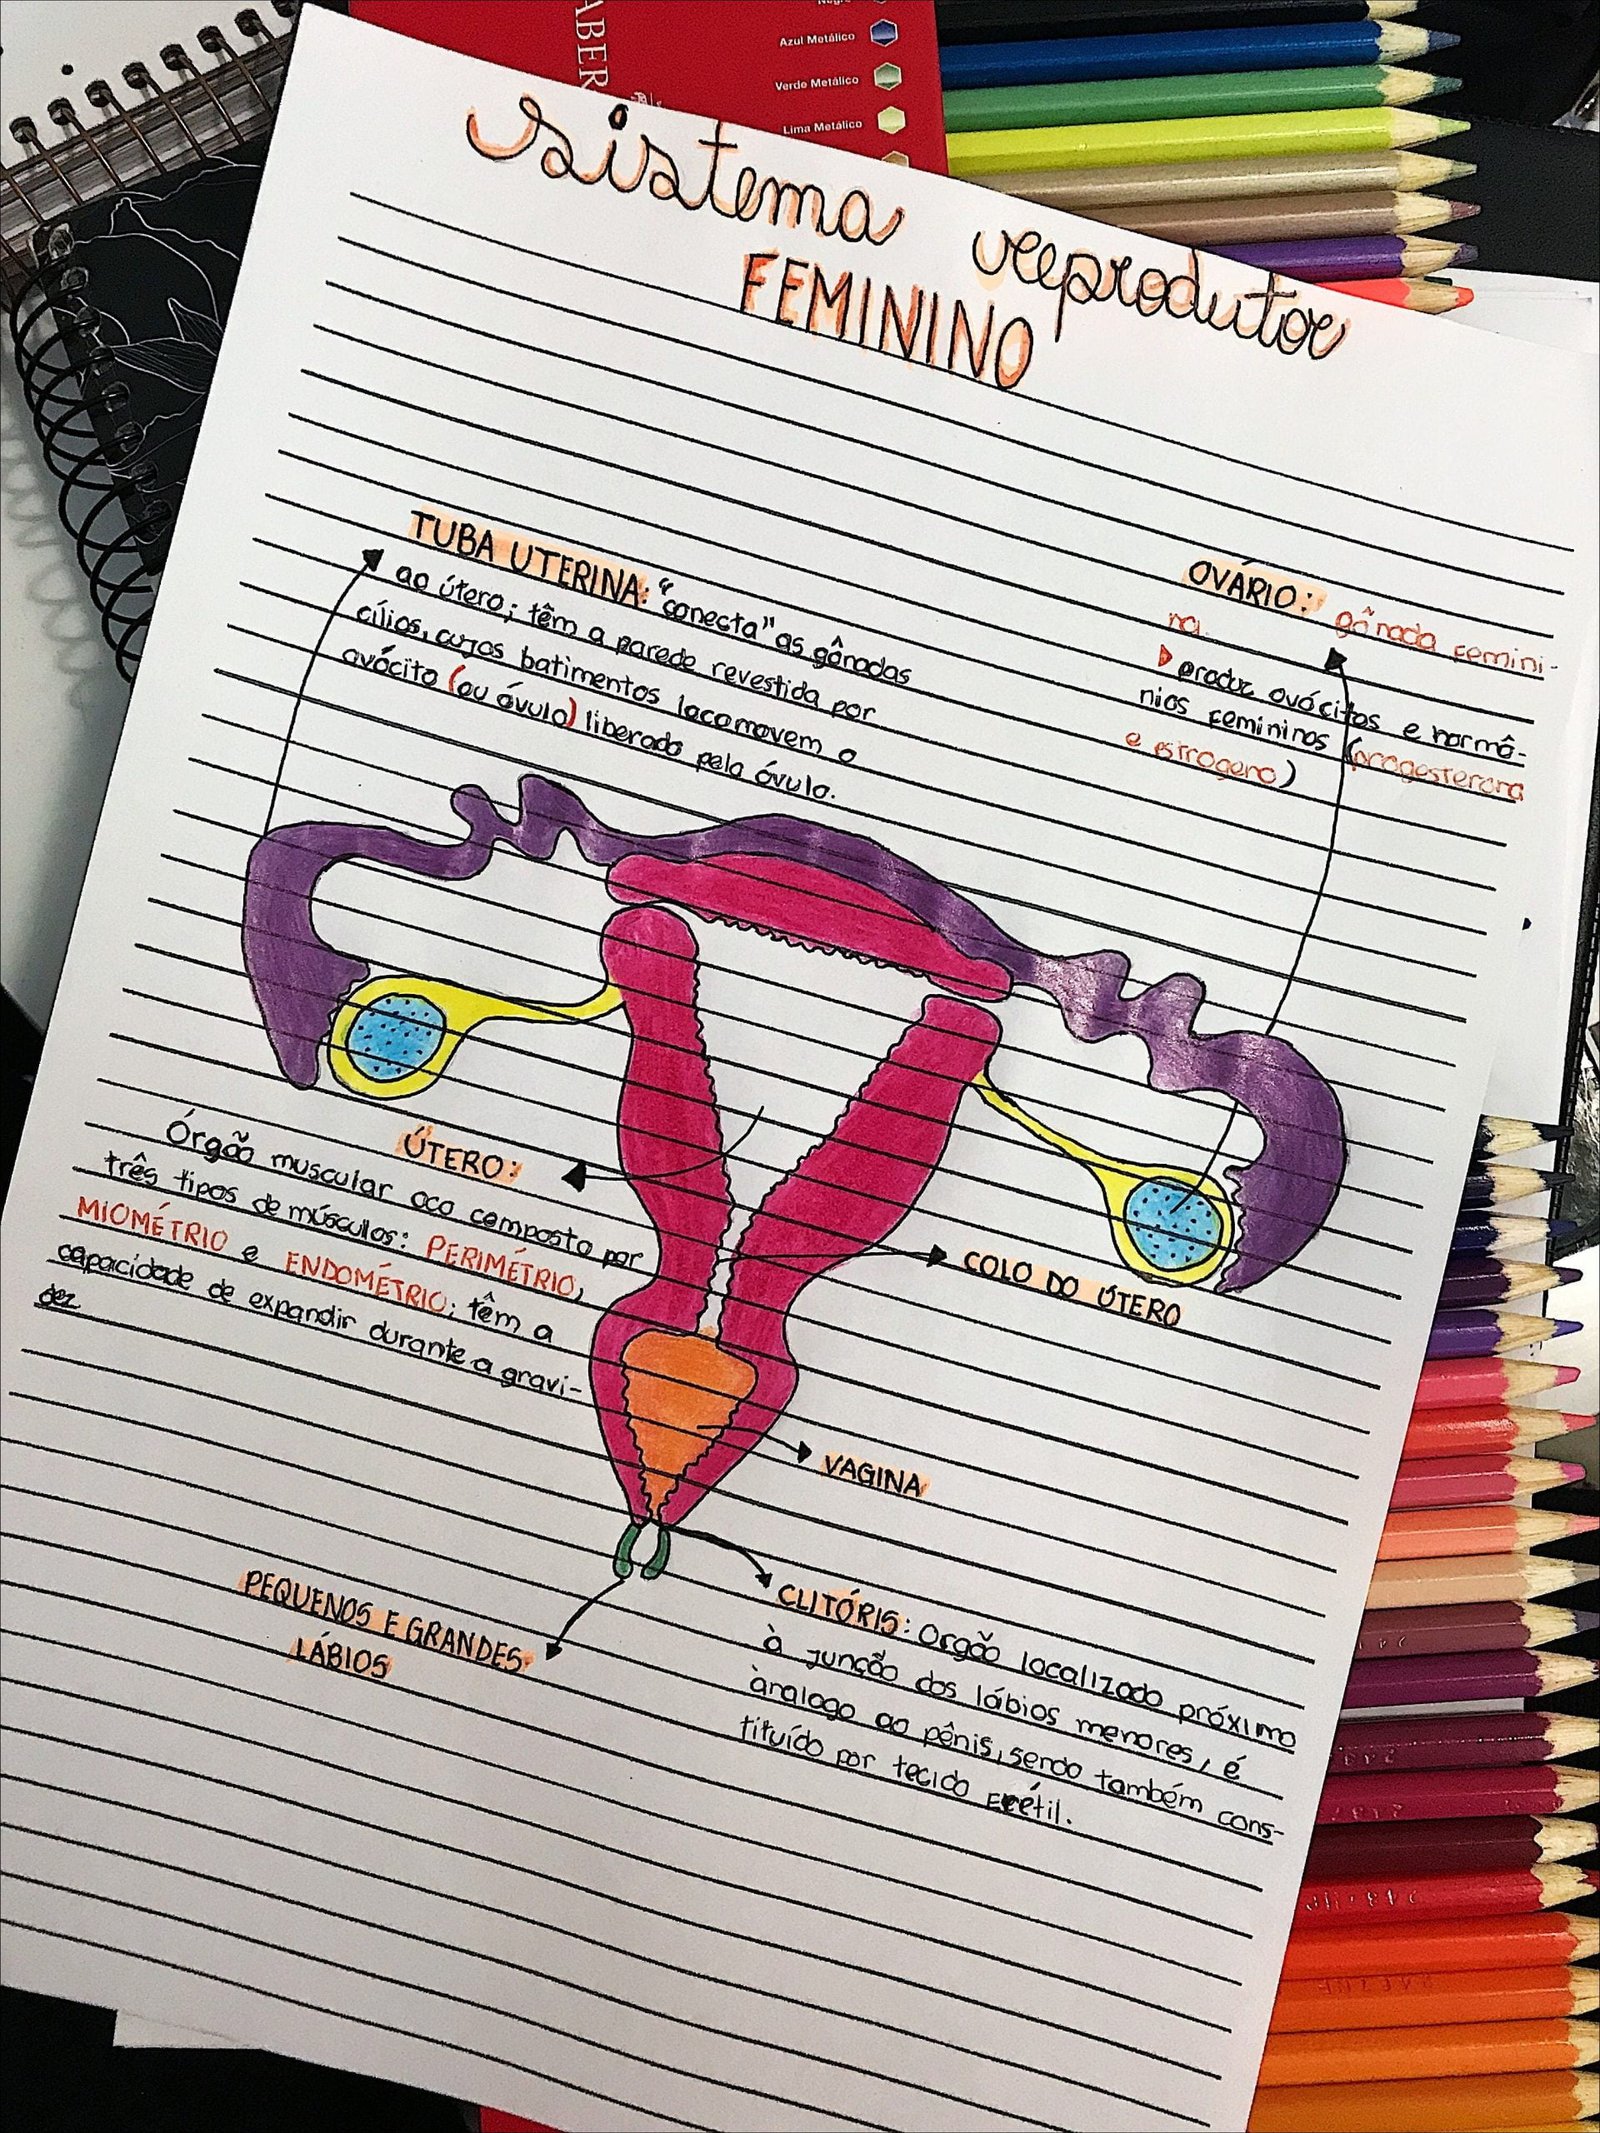 ABER
Negro
Azul Metálico
Verde Metálico
Lima Metálico
sistema reprodutor
FEMININO
TUBA UTERINA: "conecta" as gônadas
ao útero; têm a parede revestida por
cílios, cujos batimentos locomovem o
ovócito (ou óvulo) liberado pelo óvulo.
OVÁRIO: gônada femini-
na.
produz ovócitos e hormô-
nios femininos (progesterona
e estrogeno)
ÚTERO:
Órgão muscular oco composto por
três tipos de músculos: PERIMÉTRIO,
MIOMÉTRIO e ENDOMÉTRIO; têm a
capacidade de expandir durante a gravi-
dez
COLO DO ÚTERO
VAGINA
PEQUENOS E GRANDES
LÁBIOS
CLITÓRIS: Orgão localizado próximo
à junção dos lábios menores, é
ànalogo ao pênis, sendo também cons-
tituído por tecido Erétil.